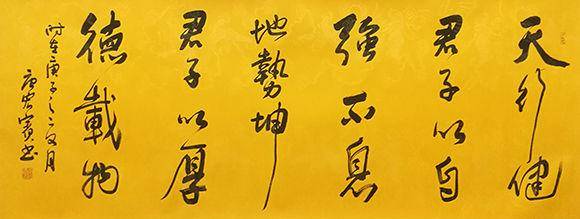 天行健
君子以自
強不息
地勢坤
君子以厚
德載物
时在庚子之二
月
唐宏寶书